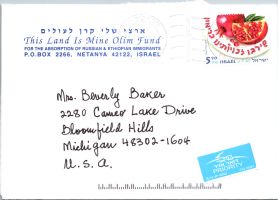 ארצי שלי קרן לעולים
This Land Is Mine Olim Fund
FOR THE ABSORPTION OF RUSSIAN & ETHIOPIAN IMMIGRANTS
P.O.BOX 2266, NETANYA 42122, ISRAEL
5.10 ISRAEL ישראל
Mrs. Beverly Baker
2280 Cameo Lake Drive
Bloomfield Hills
Michigan 48302-1604
U.S.A.
PRIORITY